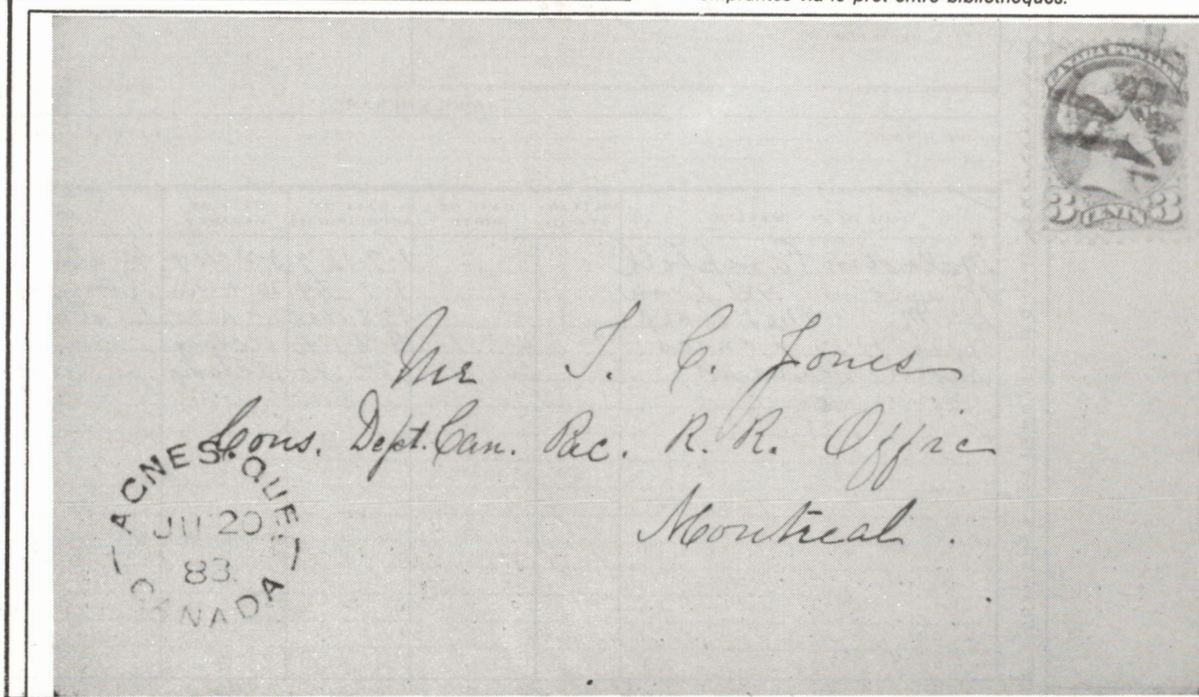 via le prêt entre bibliothèques.
CANADA POSTAGE
3 CENTS 3
Mr T. C. Jones
Cons. Dept. Can. Pac. R. R. Offic
Montreal.
AGNES. QUE.
JU 20
83.
CANADA